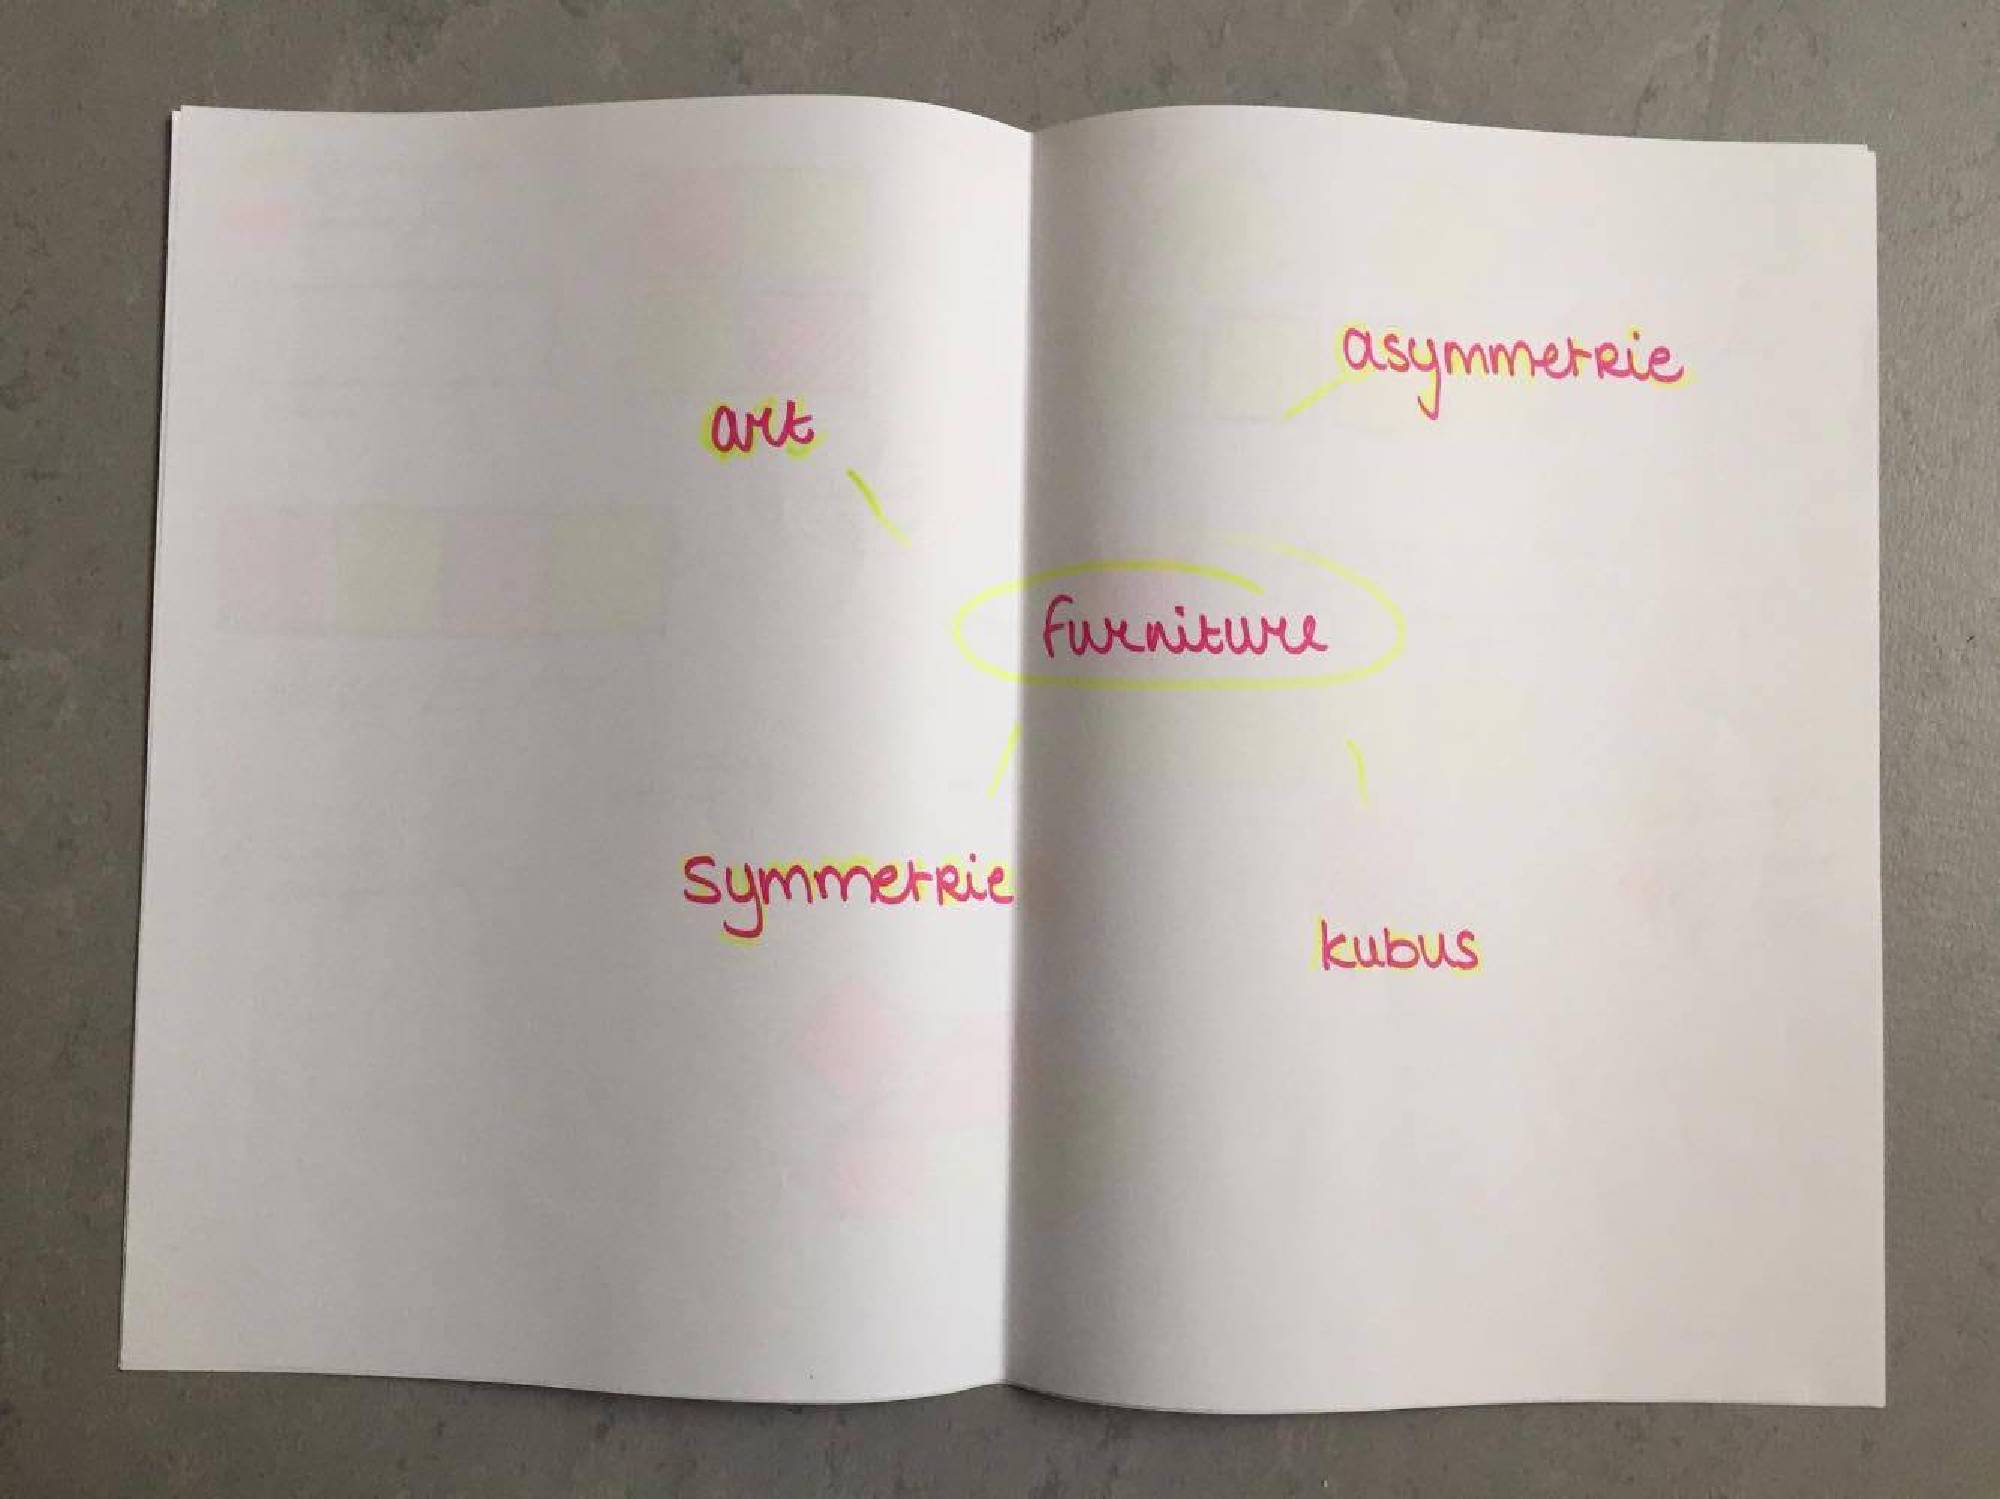 asymmetrie
art
furniture
Symmetrie
kubus